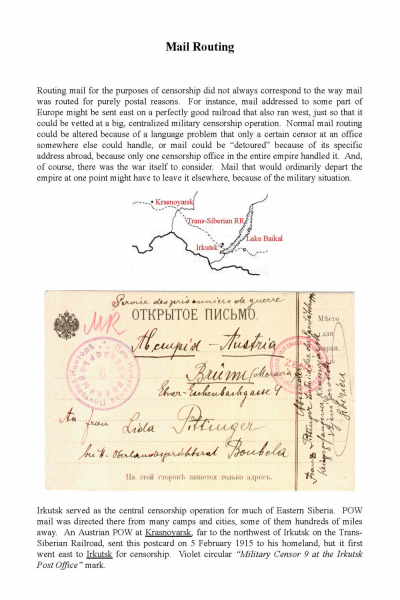 Mail Routing
Routing mail for the purposes of censorship did not always correspond to the way mail
was routed for purely postal reasons. For instance, mail addressed to some part of
Europe might be sent east on a perfectly good railroad that also ran west, just so that it
could be vetted at a big, centralized military censorship operation. Normal mail routing
could be altered because of a language problem that only a certain censor at an office
somewhere else could handle, or mail could be “detoured” because of its specific
address abroad, because only one censorship office in the entire empire handled it. And,
of course, there was the war itself to consider. Mail that would ordinarily depart the
empire at one point might have to leave it elsewhere, because of the military situation.
Krasnoyarsk
Trans-Siberian RR
Lake Baikal
Irkutsk
Service des prisonniers de guerre
ОТКРЫТОЕ ПИСЬМО.
MR
Austria
Brünn (Moravia
An Frau Lida Pittinger
bei H. Oberlandesgerichtsrat Boubela
На этой сторонѣ пишется только адресъ.
Мѣсто
для
марки.
Irkutsk served as the central censorship operation for much of Eastern Siberia. POW
mail was directed there from many camps and cities, some of them hundreds of miles
away. An Austrian POW at Krasnoyarsk, far to the northwest of Irkutsk on the Trans-
Siberian Railroad, sent this postcard on 5 February 1915 to his homeland, but it first
went east to Irkutsk for censorship. Violet circular “Military Censor 9 at the Irkutsk
Post Office” mark.